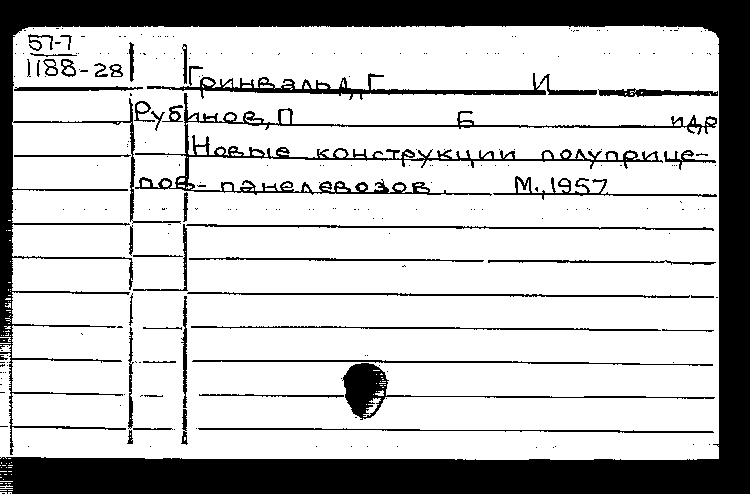 57-7
1188-28
Гринвальд, Г И
Рубинов, П Б и др
Новые конструкции полуприце-
пов-панелевозов. М., 1957